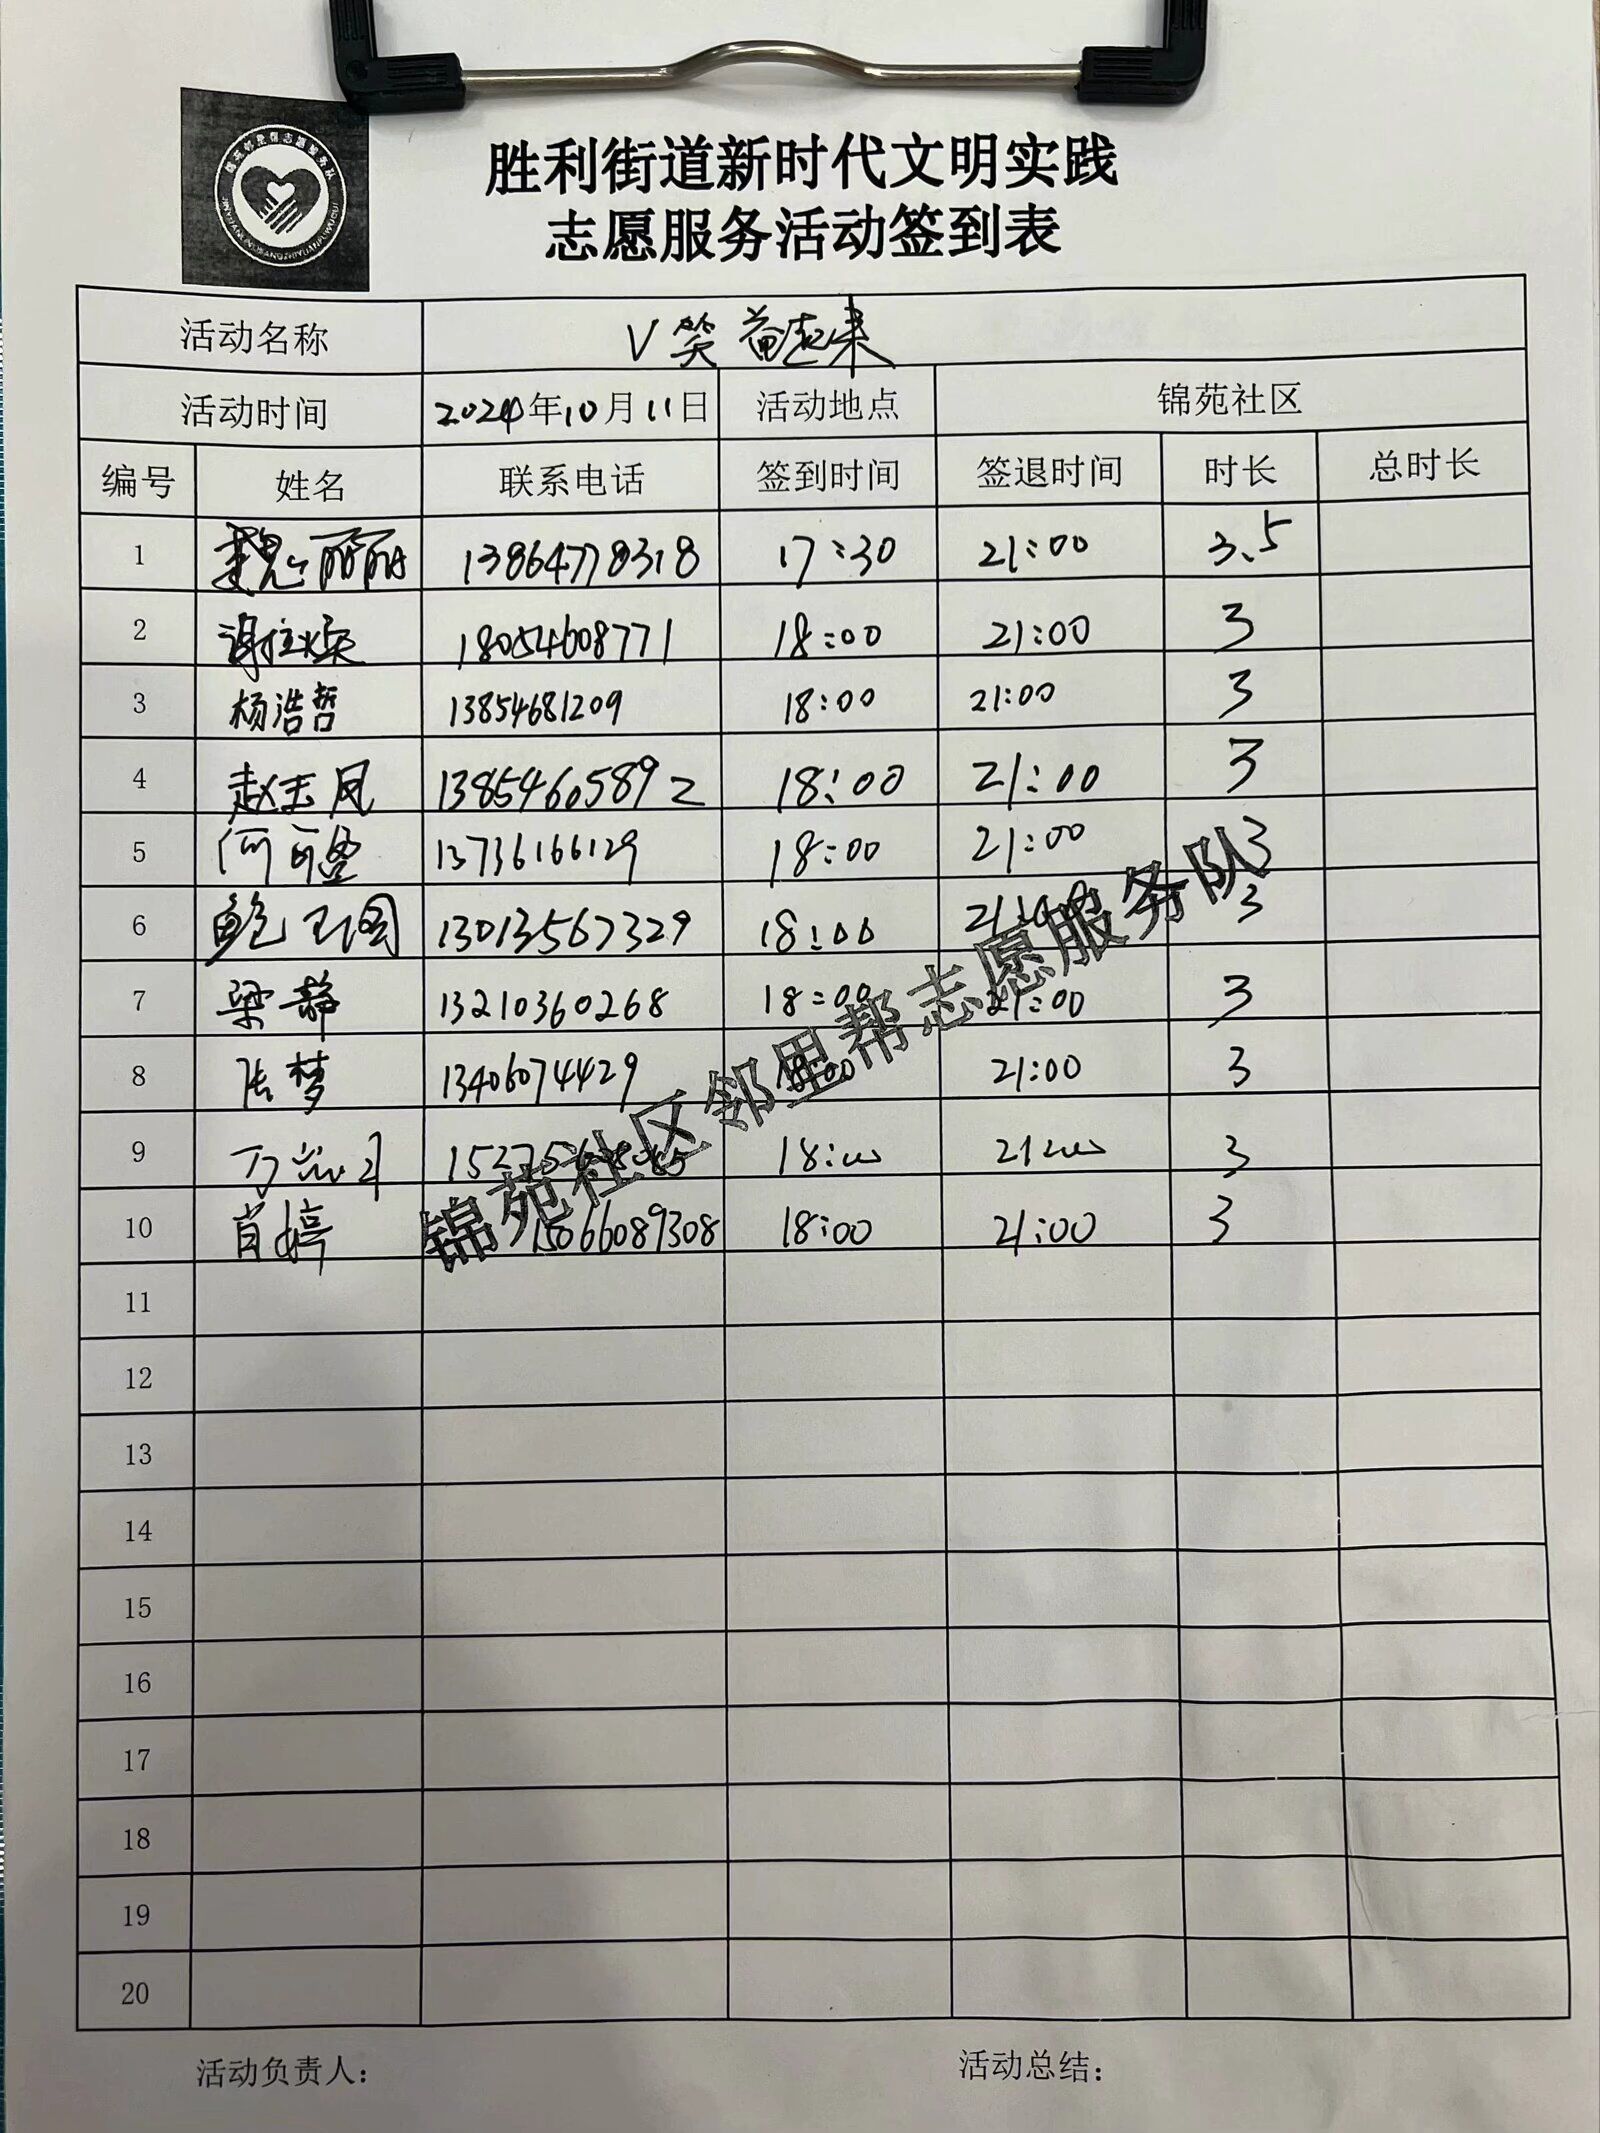 胜利街道新时代文明实践
志愿服务活动签到表
活动名称 V 笑 益起来
活动时间 2024年10月11日 活动地点 锦苑社区
编号 姓名 联系电话 签到时间 签退时间 时长 总时长
1 魏丽丽 13864778318 17:30 21:00 3.5
2 谢 18054608771 18:00 21:00 3
3 杨浩哲 13854681209 18:00 21:00 3
4 赵玉凤 13854605892 18:00 21:00 3
5 何可 13736166129 18:00 21:00 3
6 鲍 13013567329 18:00 21:00 3
7 梁静 13210360268 18:00 21:00 3
8 张梦 13406074429 18:00 21:00 3
9 18:00 21:00 3
10 肖婷 15066089308 18:00 21:00 3
锦苑社区邻里帮志愿服务队
11
12
13
14
15
16
17
18
19
20
活动负责人： 活动总结：